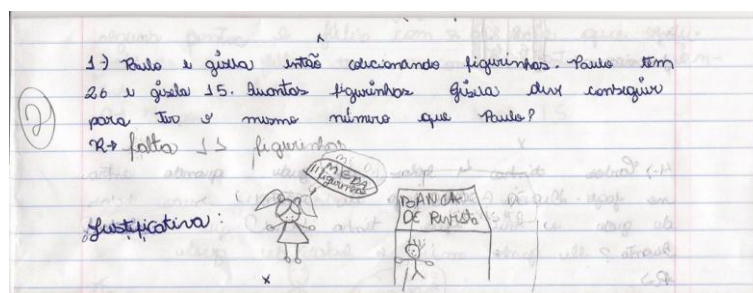 1-) Paulo e gisela então colecionando figurinhas. Paulo tem
26 e gisela 15. Quantas figurinhas Gisela deve conseguir
para ter o mesmo número que Paulo?
R→ falta 11 figurinhas
ME DA
11 figurinhas
BANCA
DE Revista
Justificativa:
2